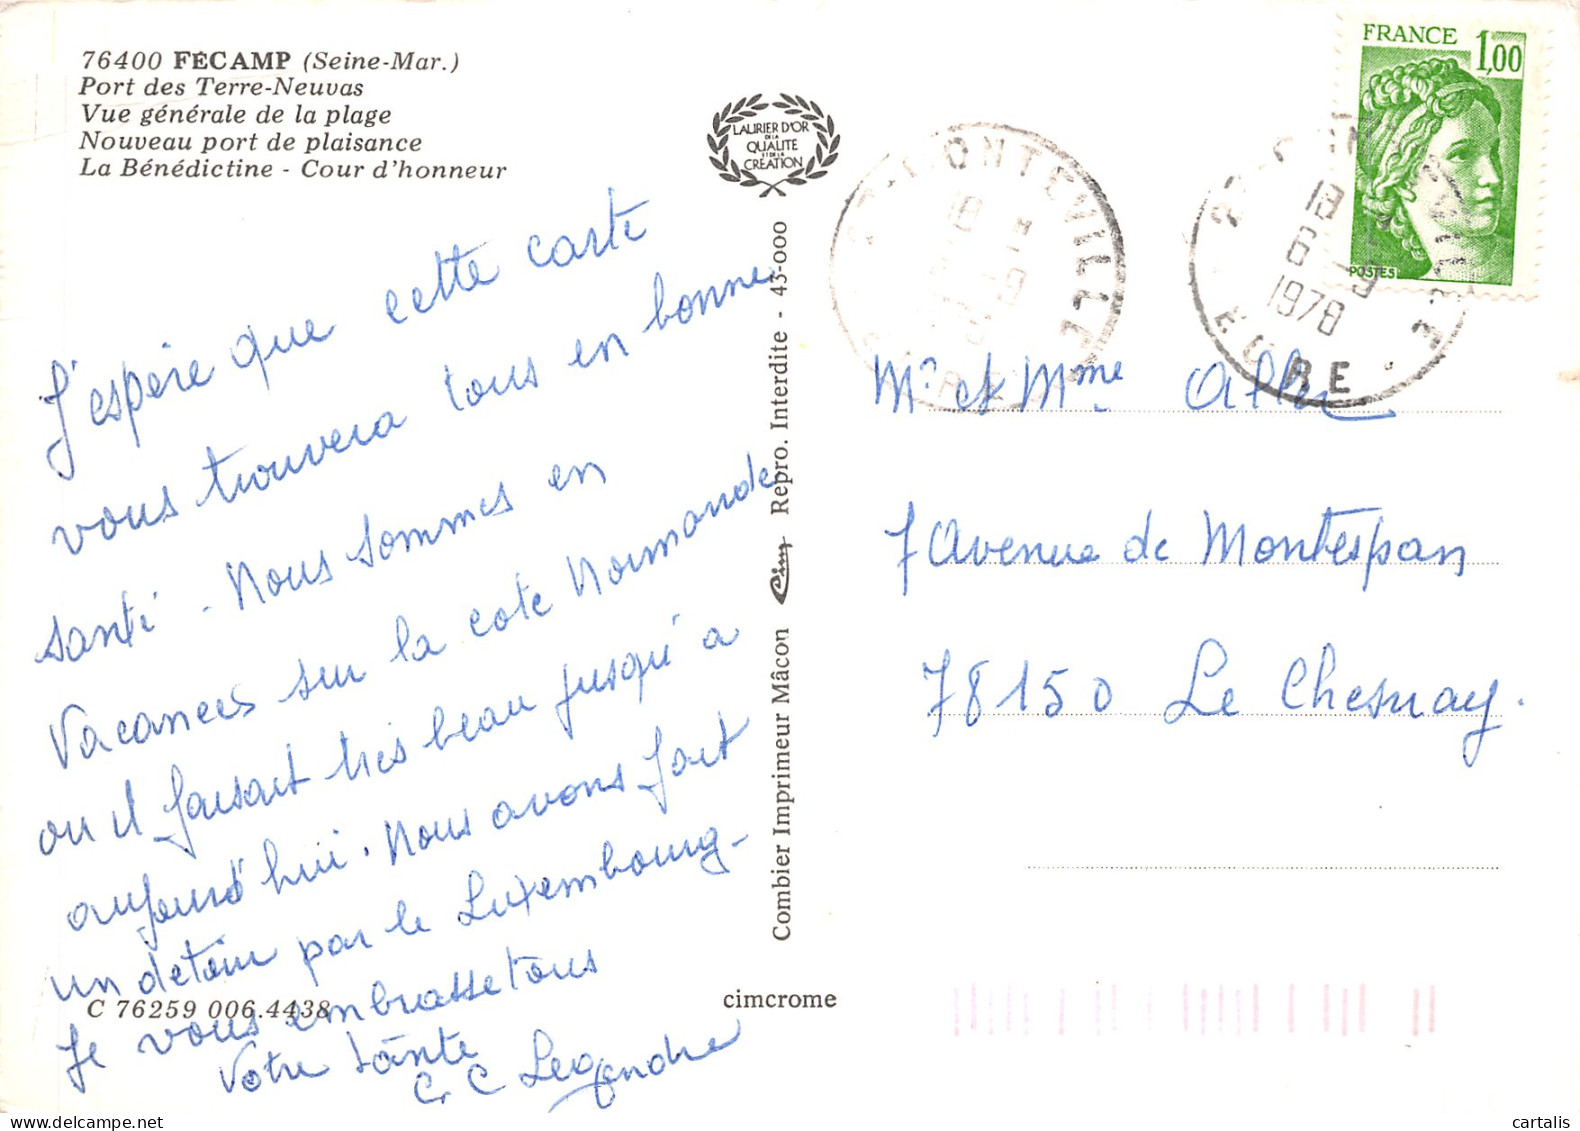 76400 FÉCAMP (Seine-Mar.)
Port des Terre-Neuvas
Vue générale de la plage
Nouveau port de plaisance
La Bénédictine - Cour d'honneur
J'espère que cette carte
vous trouvera tous en bonne
santé. Nous sommes en
Vacances sur la cote Normande
ou il faisait très beau jusqu'a
aujourd'hui. Nous avons fait
un detour par le Luxembourg -
Je vous embrasse tous
Votre tante
C. C Legendre
C 76259 006.4438
cimcrome
LAURIER D'OR
DE LA
QUALITE
ET DE LA
CREATION
Combier Imprimeur Mâcon Cim Repro. Interdite - 43-000
MONTEVILLE
18
EURE
18
6 - 9
1978
EURE
FRANCE 1,00
POSTES
Mr et Mme
7 Avenue de Montespan
78150 Le Chesnay.
cartalis